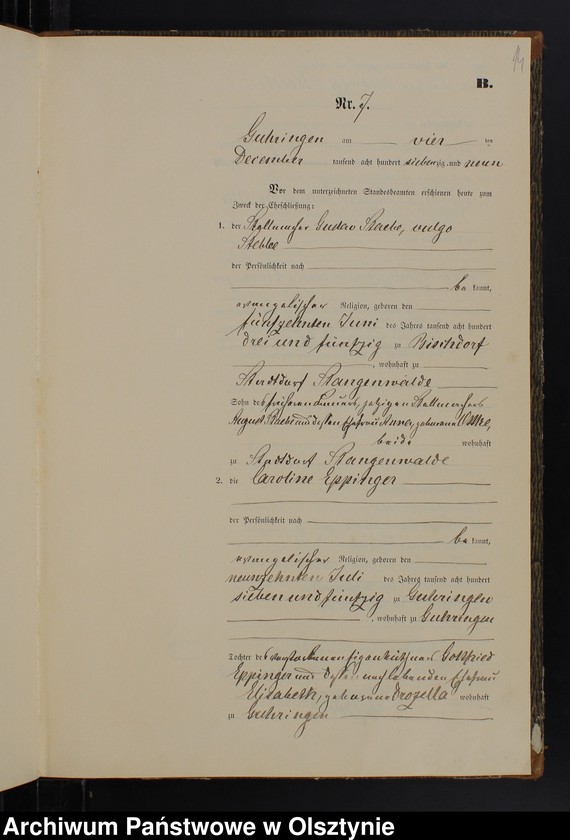 14
B.
Nr. 7.
Guhringen am vier ten
December tausend acht hundert siebenzig und neun
Vor dem unterzeichneten Standesbeamten erschienen heute zum
Zweck der Eheschließung:
1. der Stellmacher Gustav vulgo
der Persönlichkeit nach
be kannt,
evangelischer Religion, geboren den
fünfzehnten Juni des Jahres tausend acht hundert
drei und fünfzig zu Bischdorf
, wohnhaft zu
Stadtdorf Stangenwalde
Sohn des früheren jetzigen Stellmachers
August und dessen Ehefrau Anna, geborene
beide wohnhaft
zu Stadtdorf Stangenwalde
2. die Caroline Eppinger
der Persönlichkeit nach
be kannt,
evangelischer Religion, geboren den
neunzehnten Juli des Jahres tausend acht hundert
sieben und fünfzig zu Guhringen
, wohnhaft zu Guhringen
Tochter des verstorbenen Eigenkäthners Gottfried
Eppinger und dessen nachlebenden Ehefrau
Elisabeth, geborene Drozella wohnhaft
zu Guhringen
Archiwum Państwowe w Olsztynie